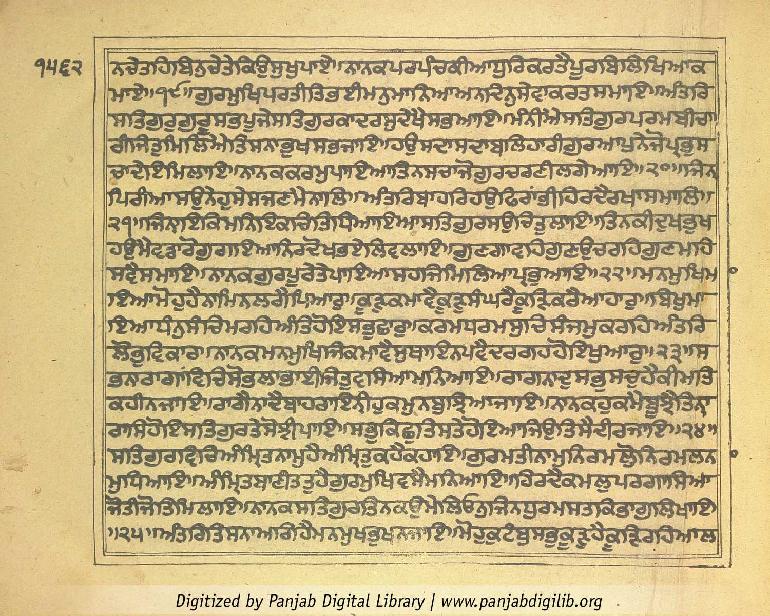 ੧੪੬੨
ਨਚੇਤਹਿਬਿਨੁਚੇਤੇਕਿਉਸੁਖੁਪਾਏ॥ਨਾਨਕਪਰਪੰਚਕੀਆਧੁਰਿਕਰਤੈਪੂਰਬਿਲਿਖਿਆਕ
ਮਾਏ॥੧੯॥ਗੁਰਮੁਖਿਪਰਤੀਤਿਭਈਮਨੁਮਾਨਿਆਅਨਦਿਨੁਸੇਵਾਕਰਤਸਮਾਇ॥ਅੰਤਰਿ
ਸਤਿਗੁਰੁਗੁਰੂਸਭਪੂਜੇਸਤਿਗੁਰਕਾਦਰਸੁਦੇਖੈਸਭਆਇ॥ਮੰਨੀਐਸਤਿਗੁਰਪਰਮਬੀਚਾ
ਰੀਜਿਤੁਮਿਲਿਐਤਿਸਨਾਭੁਖਸਭਜਾਇ॥ਹਉਸਦਾਸਦਾਬਲਿਹਾਰੀਗੁਰਅਪੁਨੇਜੋਪ੍ਰਭੁਸ
ਚਾਦੇਇਮਿਲਾਇ॥ਨਾਨਕਕਰਮੁਪਾਇਆਤਿਨਸਚਾਜੋਗੁਰਚਰਣੀਲਗੇਆਇ॥੨੦॥ਜਿਨ
ਪਿਰੀਆਸਉਨੇਹੁਸੇਸਜਣਮੈਨਾਲਿ॥ਅੰਤਰਿਬਾਹਰਿਹਉਫਿਰਾਂਭੀਹਿਰਦੈਰਖਾਸਮਾਲਿ॥
੨੧॥ਜਿਨਾਇਕਮਨਿਇਕਚਿਤਿਧਿਆਇਆਸਤਿਗੁਰਸਉਚਿਤੁਲਾਇ॥ਤਿਨਕੀਦੁਖਭੁਖ
ਹਉਮੈਵਡਾਰੋਗੁਗਇਆਨਿਰਦੋਖਭਏਲਿਵਲਾਇ॥ਗੁਣਗਾਵਹਿਗੁਣਉਚਰਹਿਗੁਣਮਹਿ
ਸਵੈਸਮਾਇ॥ਨਾਨਕਗੁਰਪੂਰੇਤੇਪਾਇਆਸਹਜਿਮਿਲਿਆਪ੍ਰਭੁਆਇ॥੨੨॥ਮਨਮੁਖਿਮ
ਇਆਮੋਹੁਹੈਨਾਮਿਨਲਗੈਪਿਆਰੁ॥ਕੂੜੁਕਮਾਵੈਕੂੜੁਸੰਘਰੈਕੂੜਿਕਰੈਆਹਾਰੁ॥ਬਿਖੁਮਾ
ਇਆਧਨੁਸੰਚਿਮਰਹਿਅੰਤਿਹੋਇਸਭੁਛਾਰੁ॥ਕਰਮਧਰਮਸੁਚਿਸੰਜਮੁਕਰਹਿਅੰਤਰਿ
ਲੋਭੁਵਿਕਾਰ॥ਨਾਨਕਮਨਮੁਖਿਜਿਕਮਾਵੈਸੁਥਾਇਨਪਵੈਦਰਗਹਹੋਇਖੁਆਰੁ॥੨੩॥ਸ
ਭਨਾਰਾਗਾਂਵਿਚਿਸੋਭਲਾਭਾਈਜਿਤੁਵਸਿਆਮਨਿਆਇ॥ਰਾਗੁਨਾਦੁਸਭੁਸਚੁਹੈਕੀਮਤਿ
ਕਹੀਨਜਾਇ॥ਰਾਗੈਨਾਦੈਬਾਹਰਾਇਨੀਹੁਕਮੁਨਬੂਝਿਆਜਾਇ॥ਨਾਨਕਹੁਕਮੈਬੂਝੈਤਿਨਾ
ਰਾਸਿਹੋਇਸਤਿਗੁਰਤੇਸੋਝੀਪਾਇ॥ਸਭੁਕਿਛੁਤਿਸਤੇਹੋਇਆਜਿਉਤਿਸੈਦੀਰਜਾਇ॥੨੪॥
ਸਤਿਗੁਰਵਿਚਿਅੰਮ੍ਰਿਤਨਾਮੁਹੈਅੰਮ੍ਰਿਤੁਕਹੈਕਹਾਇ॥ਗੁਰਮਤੀਨਾਮੁਨਿਰਮਲੋੁਨਿਰਮਲਨ
ਮੁਧਿਆਇ॥ਅੰਮ੍ਰਿਤਬਾਣੀਤਤੁਹੈਗੁਰਮੁਖਿਵਸੈਮਨਿਆਇ॥ਹਿਰਦੈਕਮਲੁਪਰਗਾਸਿਆ
ਜੋਤੀਜੋਤਿਮਿਲਾਇ॥ਨਾਨਕਸਤਿਗੁਰਤਿਨਕਉਮੇਲਿਓਨੁਜਿਨਧੁਰਮਸਤਕਿਭਾਗੁਲਿਖਾਇ
॥੨੫॥ਅੰਦਰਿਤਿਸਨਾਅਗਿਹੈਮਨਮੁਖਭੁਖਨਜਾਇ॥ਮੋਹੁਕੁਟੰਬੁਸਭੁਕੂੜੁਹੈਕੂੜਿਰਹਿਆਲ
Digitized by Panjab Digital Library | www.panjabdigilib.org